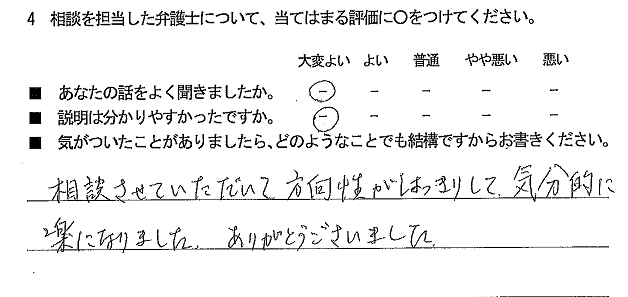 4 相談を担当した弁護士について、当てはまる評価に○をつけてください。
大変よい よい 普通 やや悪い 悪い
■ あなたの話をよく聞きましたか。 － － － － －
■ 説明は分かりやすかったですか。 － － － － －
■ 気がついたことがありましたら、どのようなことでも結構ですからお書きください。
相談させていただいて方向性がはっきりして、気分的に
楽になりました。ありがとうございました